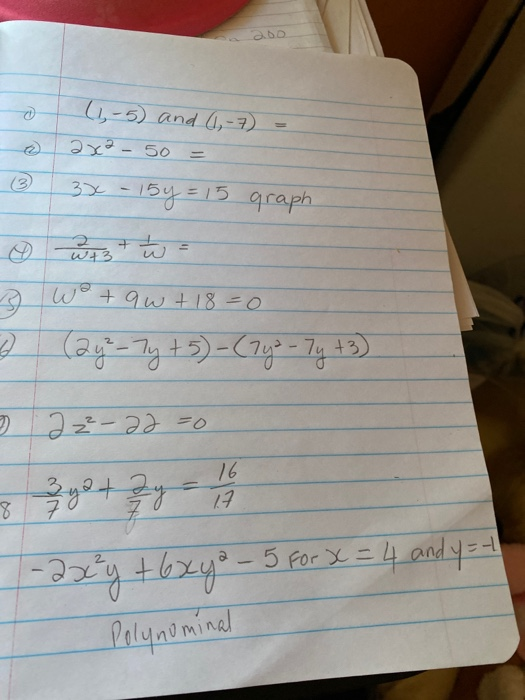 200
(1) (1,-5) and (1,-7) =
(2) 2x² - 50 =
(3) 3x - 15y = 15 graph
(4) 2/(w+3) + 1/w =
w² + 9w + 18 = 0
(2y² - 7y + 5) - (7y² - 7y + 3)
2z² - 22 = 0
8 3/7 y² + 2/7 y = 16/17
-2x²y + 6xy² - 5 For x = 4 and y = -1
Polynominal